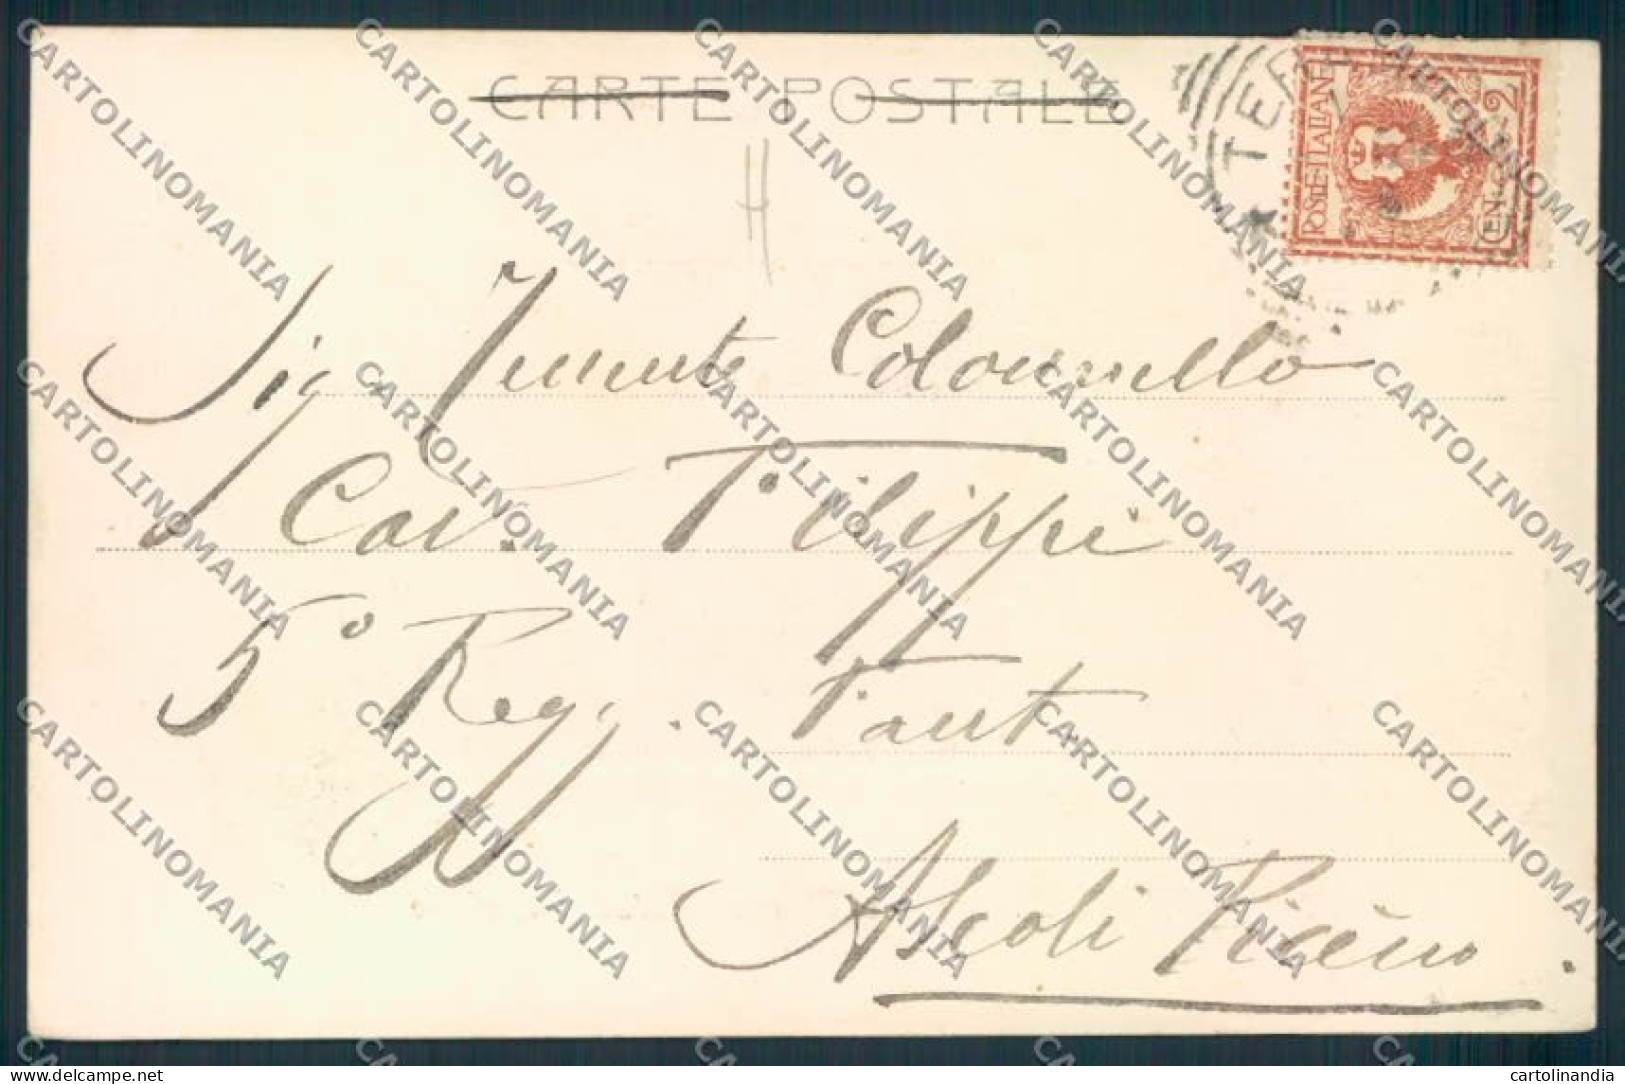 CARTE POSTALE
POSTE ITALIANE
CEN. 2
TER
Sig. Tenente Colonnello
Cav. Filippi
5° Regg. Fant.
Ascoli Piceno.
CARTOLINOMANIA
cartolinandia